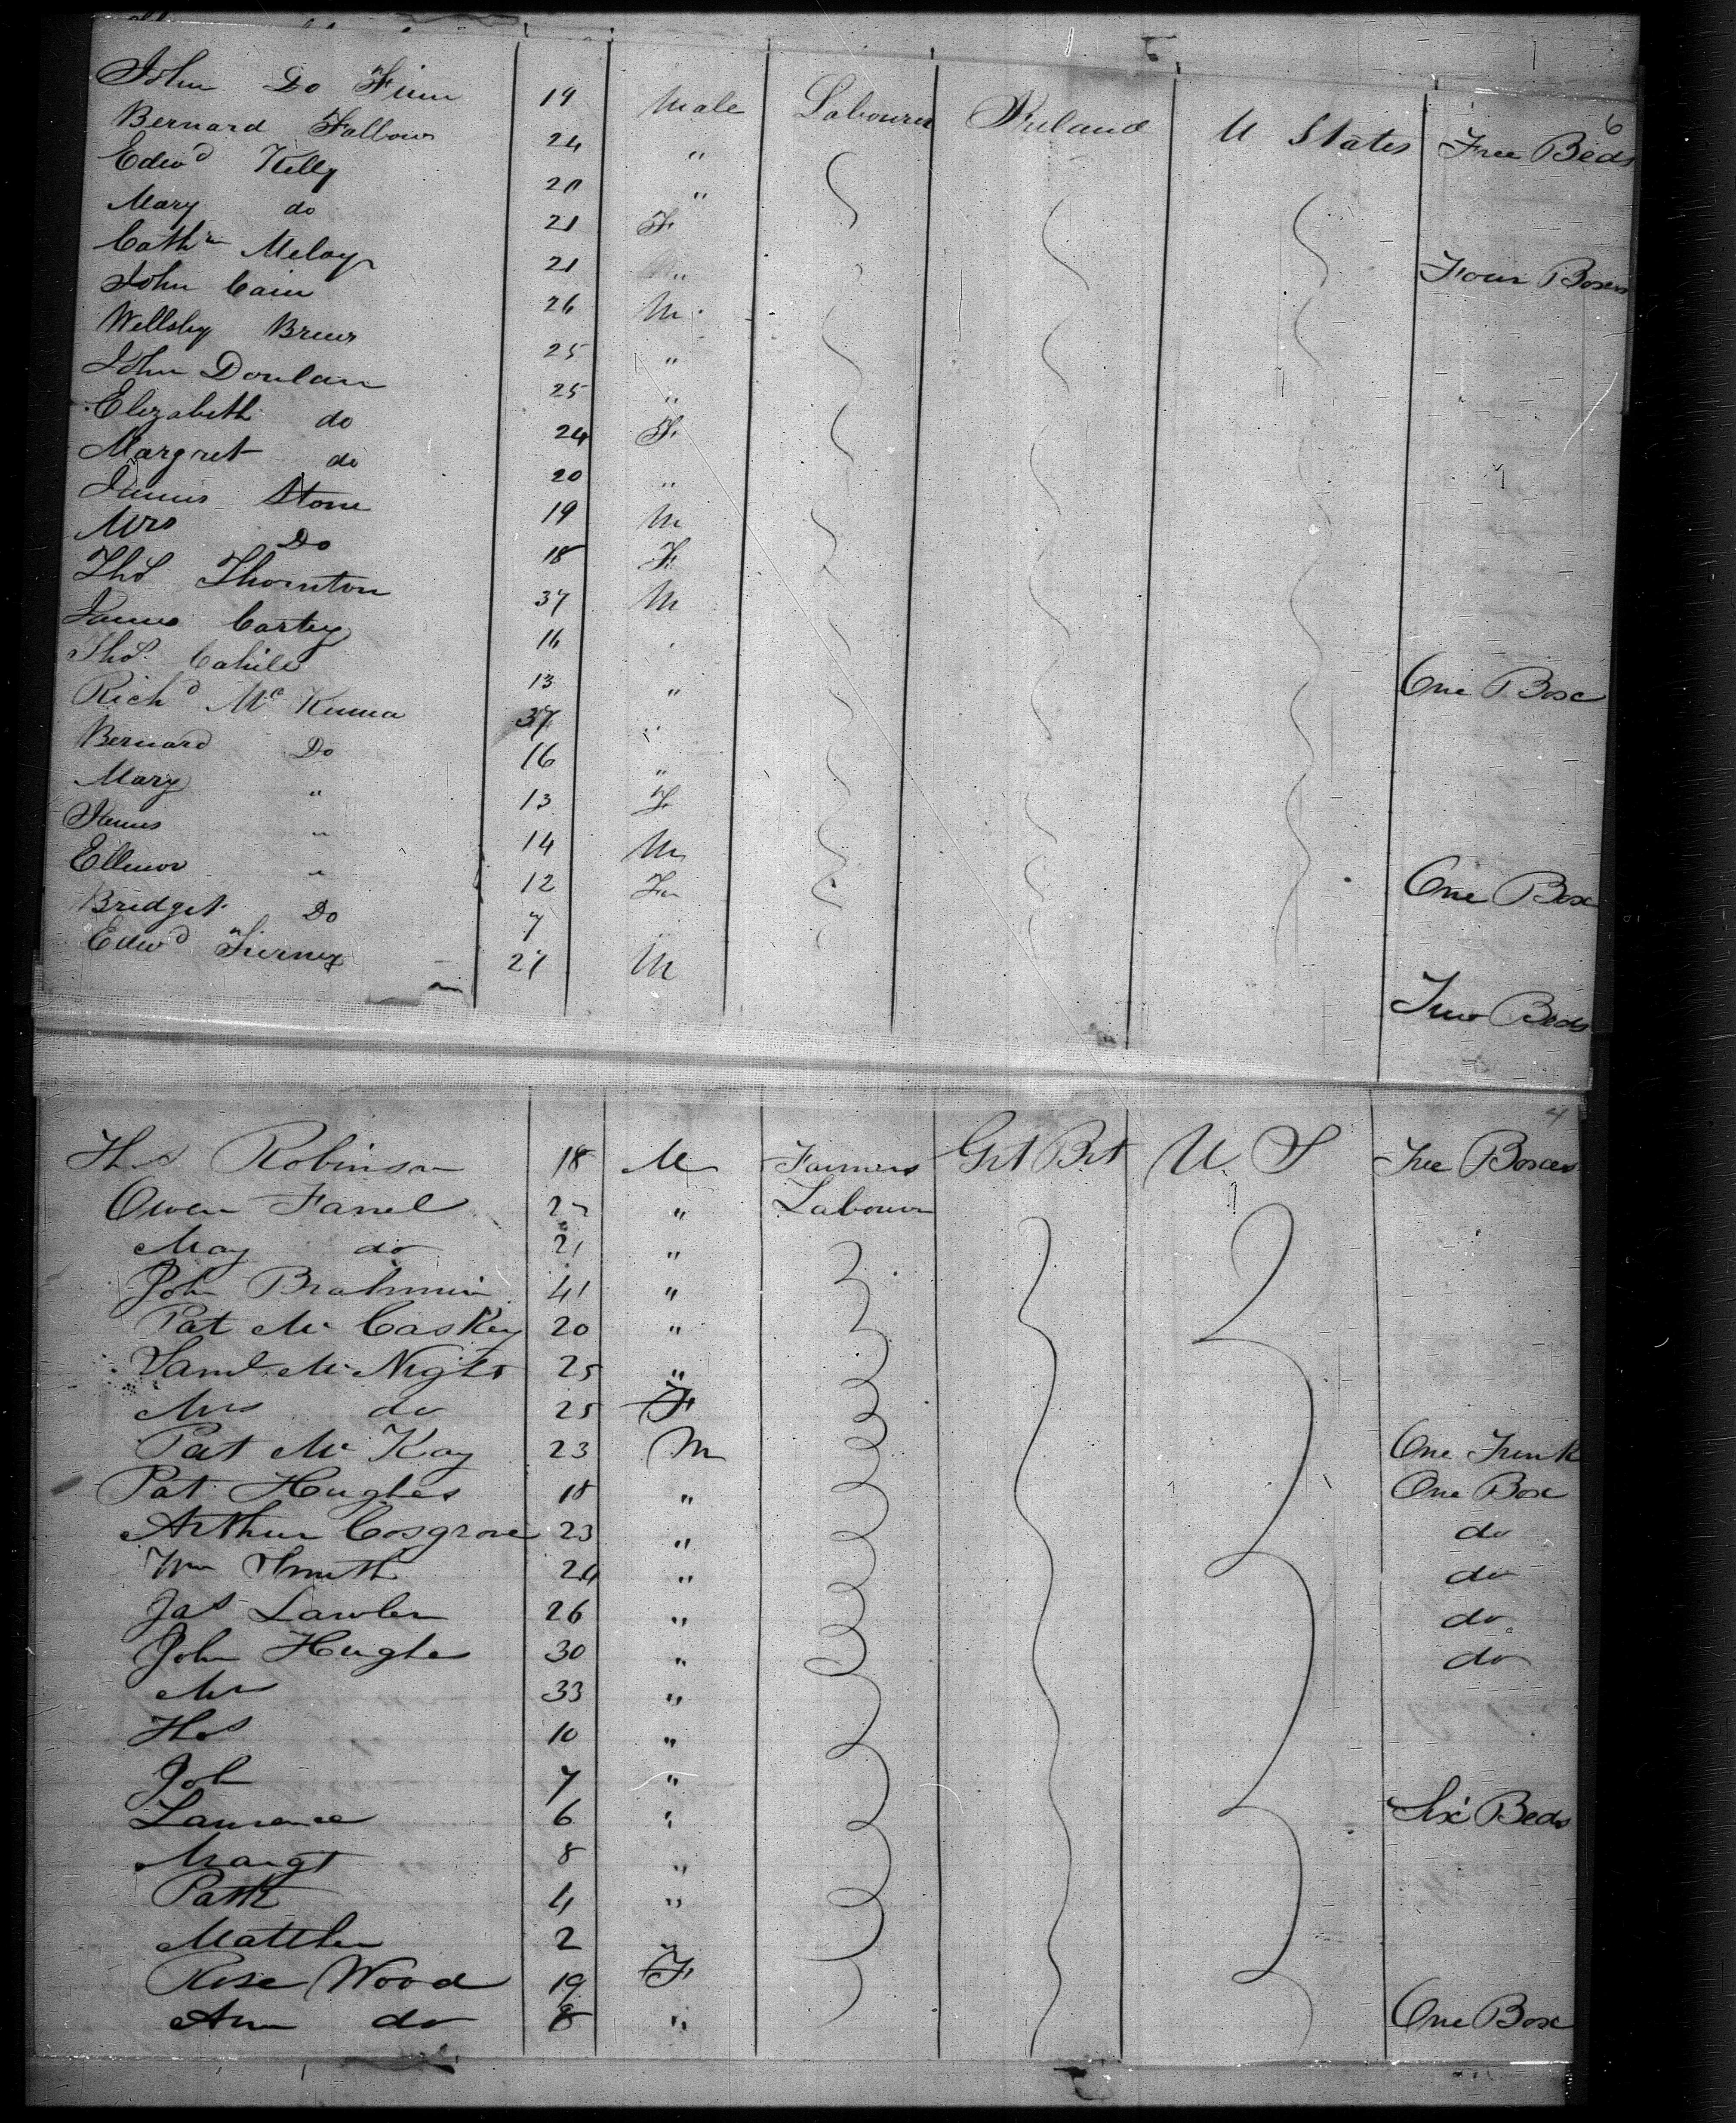 6
John Do Finn 19 Male Labourer Ireland U States Free Beds
Bernard Fallow 24 "
Edwd Kelly 20 "
Mary do 21 F
Cathrn Meloy 21 " Four Boxes
John Cain 26 M
Wellsby Brewr 25 "
John Donlan 25 "
Elizabeth do 24 F
Margret do 20 "
James Stone 19 M
Mrs Do 18 F
Thos Thornton 37 M
James Cartey 16 "
Thos Cahill 13 " One Box
Richd Mc Kenna 37 "
Bernard Do 16 "
Mary " 13 F
James " 14 M
Ellenor " 12 F One Box
Bridget Do 7 "
Edwd Tierney 21 M
Two Beds
4
Thos Robinson 18 M Farmers Grt Brt U S Free Boxes
Owen Farrel 27 " Labourer
May do 21 "
John Brahmin 41 "
Pat Mc Caskey 20 "
Saml Mc Night 25 "
Mrs do 25 F
Pat Mc Kay 23 M One Trunk
Pat Hughes 18 " One Box
Arthur Cosgrove 23 " do
Wm Smith 24 " do
Jas Lawler 26 " do
John Hughes 30 " do
Mrs 33 "
Thos 10 "
Joh 7 "
Lawrence 6 " Six Beds
Margt 8 "
Patk 4 "
Matthew 2 "
Rose Wood 19 F
Ann do 8 " One Box